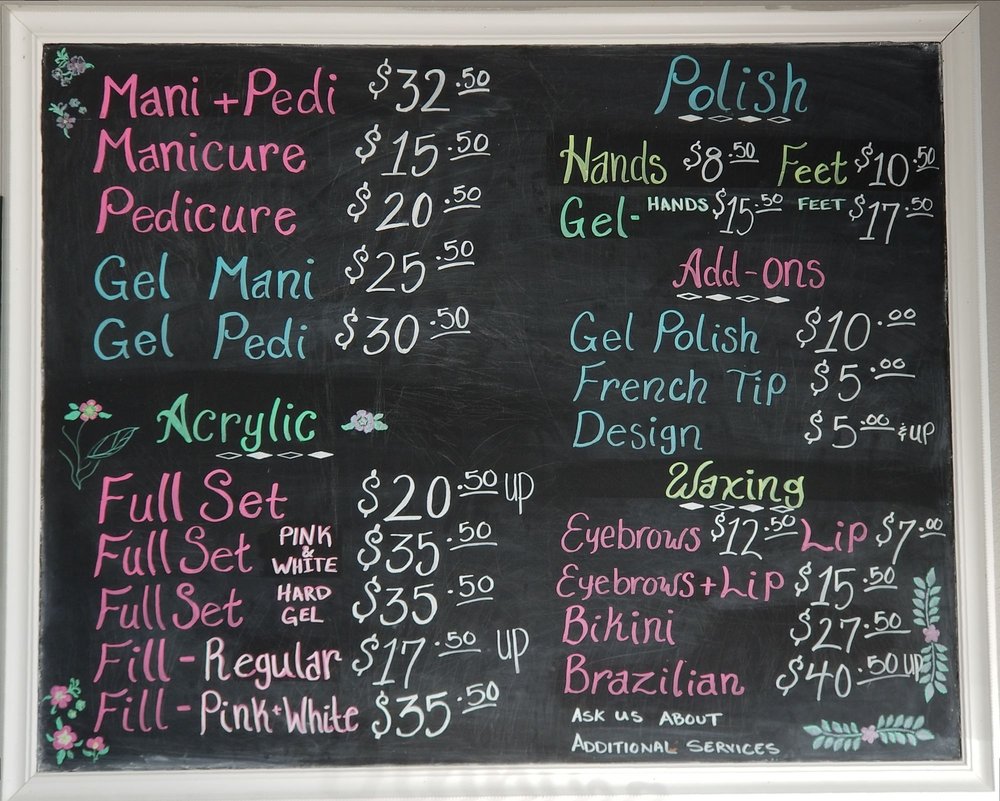 Mani + Pedi $32.50
Manicure $15.50
Pedicure $20.50
Gel Mani $25.50
Gel Pedi $30.50
Acrylic
Full Set $20.50 UP
Full Set PINK & WHITE $35.50
Full Set HARD GEL $35.50
Fill - Regular $17.50 UP
Fill - Pink + White $35.50
Polish
Hands $8.50 Feet $10.50
Gel - HANDS $15.50 FEET $17.50
Add-ons
Gel Polish $10.00
French Tip $5.00
Design $5.00 & UP
Waxing
Eyebrows $12.50 Lip $7.00
Eyebrows + Lip $15.50
Bikini $27.50
Brazilian $40.50 UP
ASK US ABOUT
ADDITIONAL SERVICES